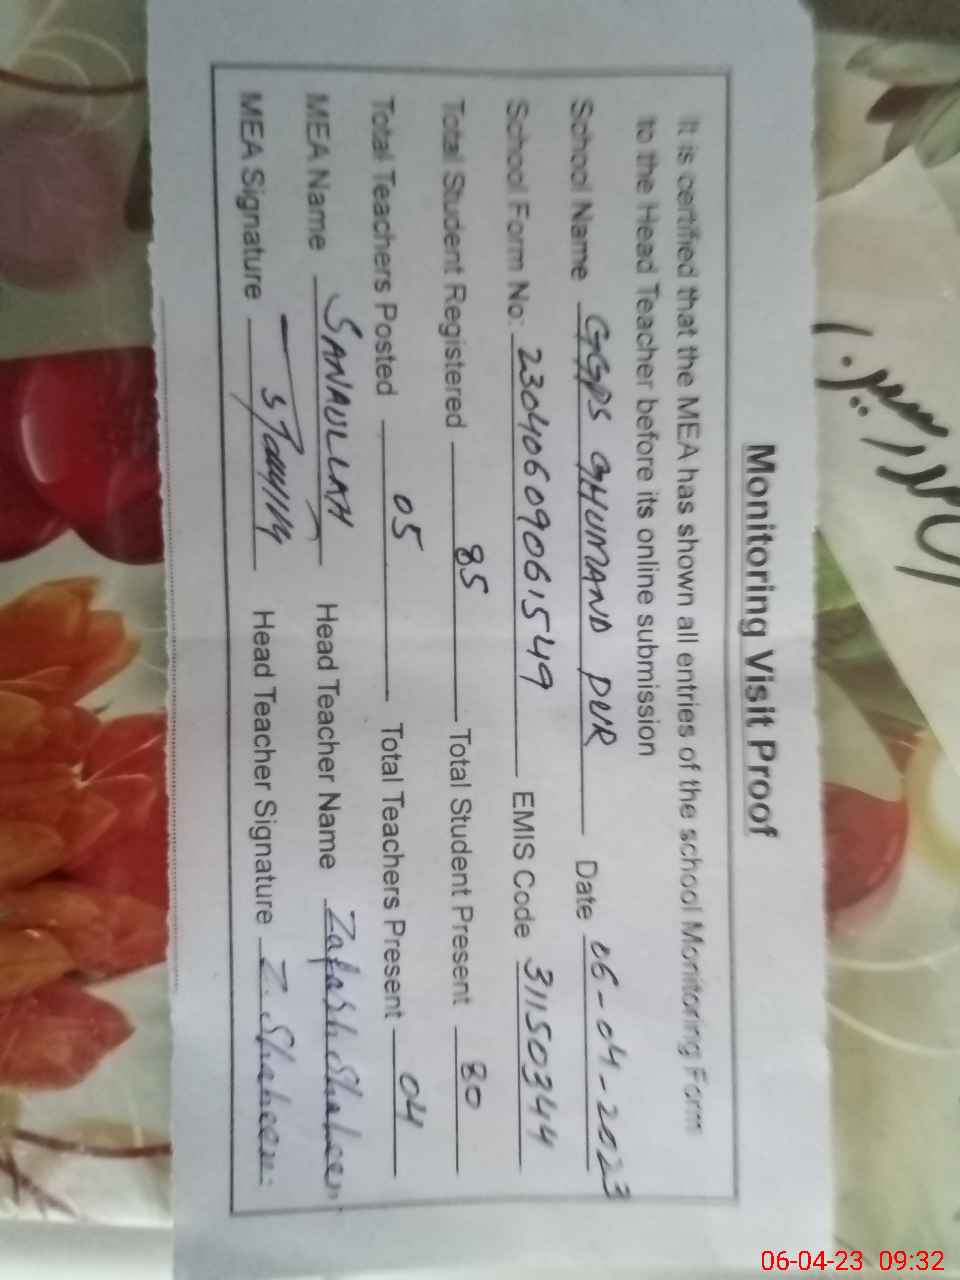 Monitoring Visit Proof
It is certified that the MEA has shown all entries of the school Monitoring Form
to the Head Teacher before its online submission
School Name GGPS GHUMAND PUR Date 06-04-2023
School Form No: 23040609061549 EMIS Code 31150344
Total Student Registered 85 Total Student Present 80
Total Teachers Posted 05 Total Teachers Present 04
MEA Name SANAULLAH Head Teacher Name Zafash Shaheen
MEA Signature Head Teacher Signature Z. Shaheen
06-04-23 09:32